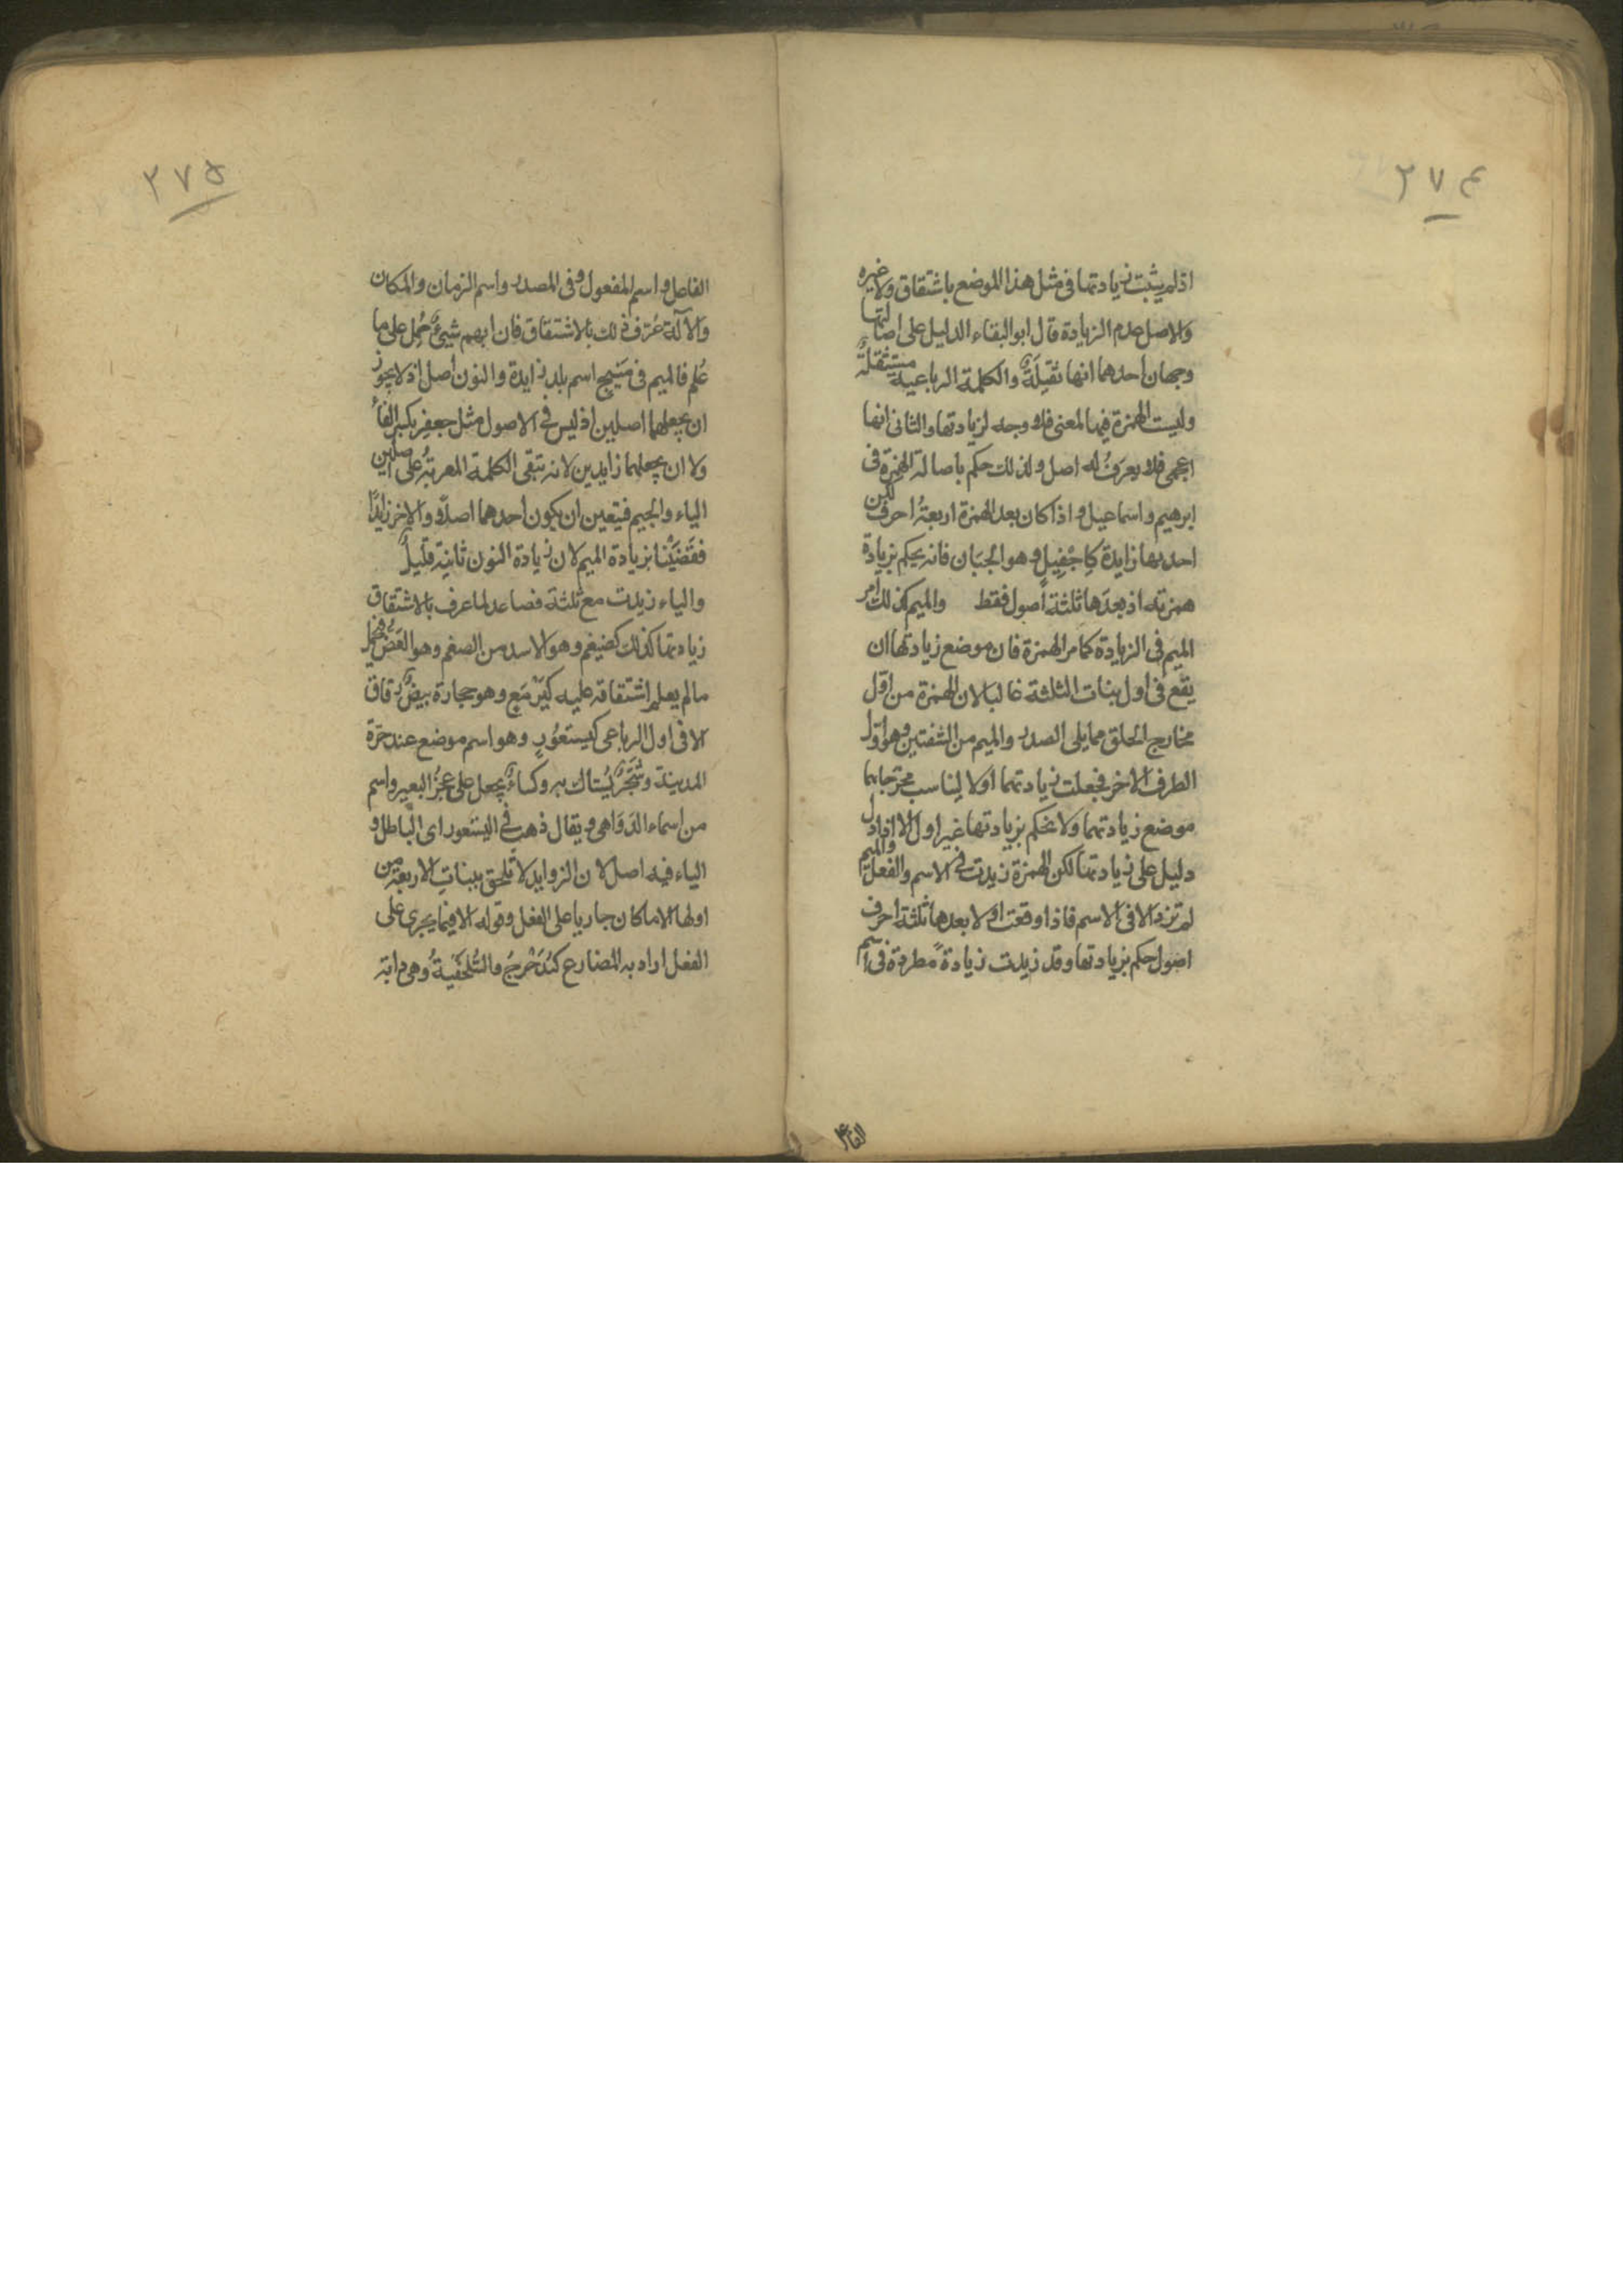 ٢٧٤
اذ لم يثبت زيادتها فى مثل هذا الموضع باشتقاق ولا غيره
والاصل عدم الزيادة قال ابو البقاء الدليل على اصالتها
وجهان احدهما انها ثقيلة والكلمة الرباعية مستثقلة
وليست الهمزة فيها لمعنى فلا وجه لزيادتها والثانى انها
اعجمى فلا يعرف له اصل ولذلك حكم باصالة الهمزة فى
ابرهيم واسماعيل واذا كان بعد الهمزة اربعة احرف لكن
احديها زايدة كاِجْفِيل وهو الجبان فانه يحكم بزيادة
همزته اذ بعدها ثلثة اصول فقط والميم كذلك امر
الميم فى الزيادة كامر الهمزة فان موضع زيادتها ان
يقع فى اول بنات الثلثة غالبا لان الهمزة من اول
مخارج الحلق مما يلى الصدر والميم من الشفتين وهو اول
الطرف الاخر فجعلت زيادتهما اولا ليناسب مخرجاهما
موضع زيادتهما ولا يحكم بزيادتها غير اول الا اذا دل
دليل على زيادتها لكن الهمزة زيدت فى الاسم والفعل والميم
لم تزد الا فى الاسم فاذا وقعت اولا بعدها ثلثة احرف
اصول حكم بزيادتها وقد زيدت زيادةً مطردة فى اسم
الفاعل
٢٧٥
الفاعل واسم المفعول وفى المصدر واسم الزمان والمكان
والآلة عُرف ذلك بالاشتقاق فان ابهم شيئ حُمل على ما
عُلم فالميم فى مَنْبِج اسم بلد زايدة والنون اصل اذ لا يجوز
ان يجعلهما اصلين اذ ليس فى الاصول مثل جعفِر بكسر الفاء
ولا ان يجعلهما زايدين لانه تبقى الكلمة المعربة على اصلين
الباء والجيم فيتعين ان يكون احدهما اصلاً والاخر زايدًا
فقَضَيْنا بزيادة الميم لان زيادة النون ثانية قليلٌ
والياء زيدت مع ثلثة فصاعدا لما عرف بالاشتقاق
زيادتها كذلك كضيغم وهو الاسد من الضغم وهو العَضّ فحمل
ما لم يعلم اشتقاقه عليه كيَرْمَع وهو حجارة بيضٌ رقاق
الا فى اول الرباعى كيستعُور وهو اسم موضع عند حرة
المدينة وشَجَرٌ يُستاك به وكساءٌ يجعل على عجُز البعير واسم
من اسماء الدَوَاهى ويقال ذهب فى اليستعور اى الباطل و
الياء فيه اصل لان الزوايد لا تلحق ببنات الاربعة من
اولها الا ما كان جاريا على الفعل وقوله الا فيما يجرى على
الفعل اراد به المضارع كنُدَحْرِجُ والسُّلَحْفِيَةُ وهى دابة